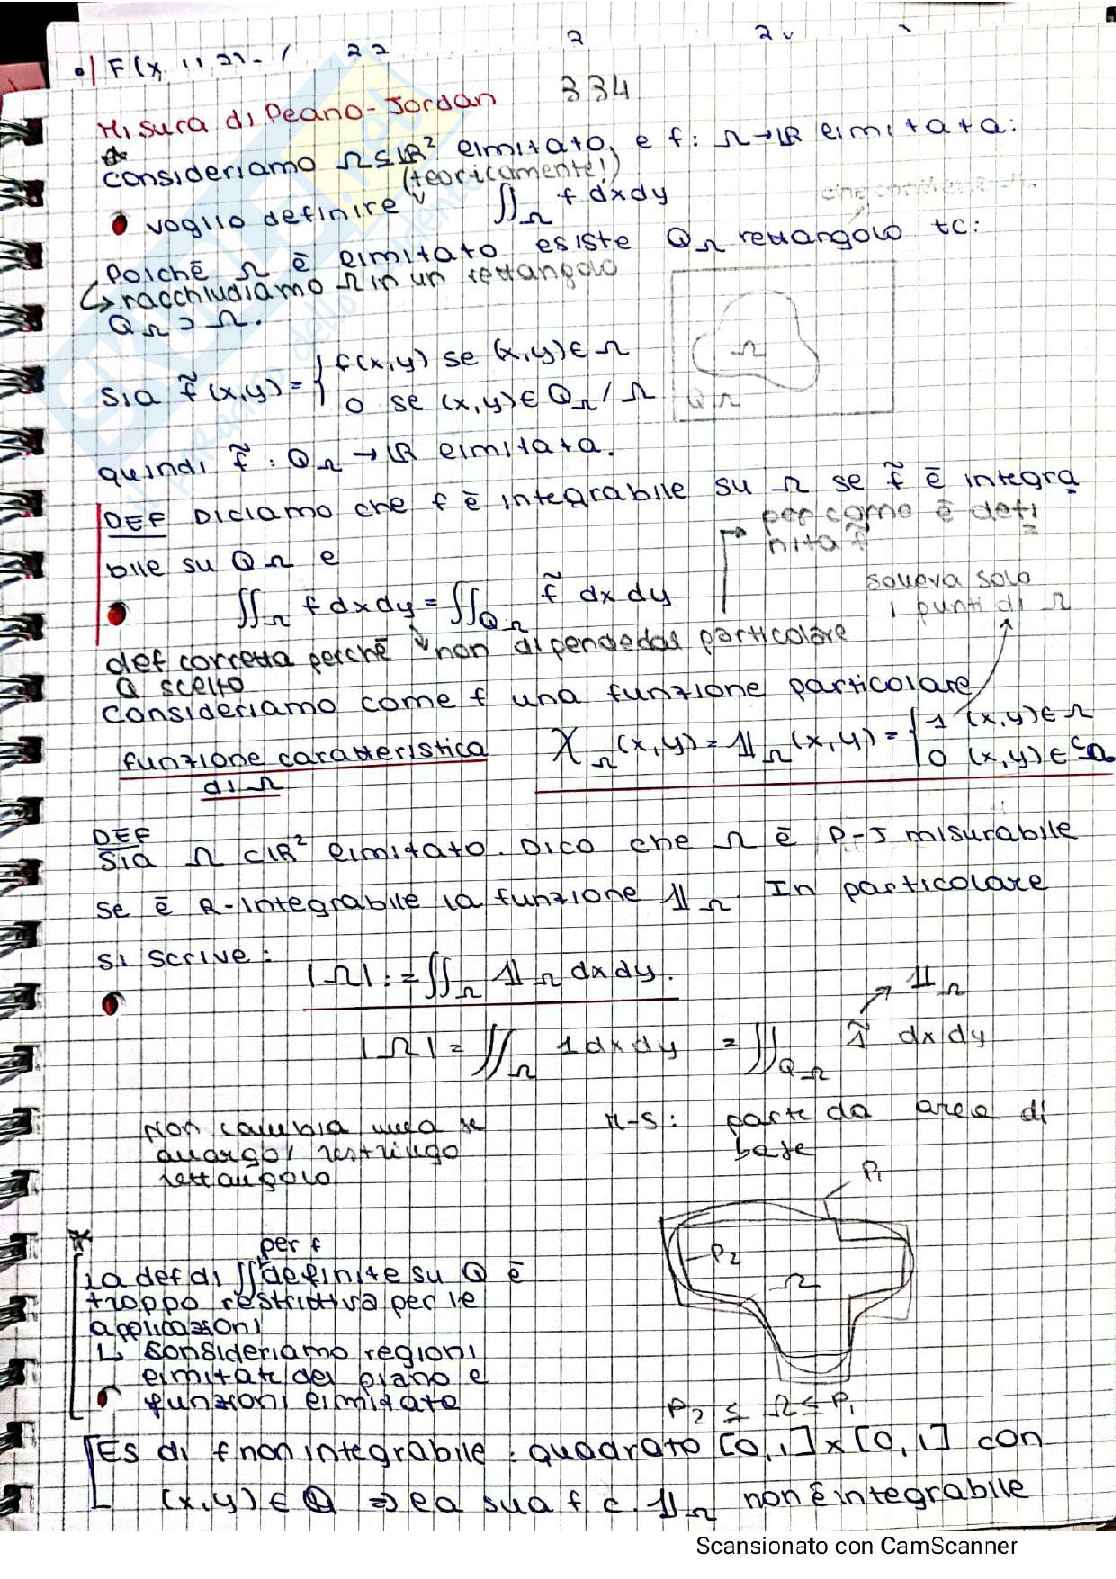 Misura di Peano-Jordan 334
consideriamo Ω⊆ℝ² limitato, e f: Ω→ℝ limitata:
(teoricamente!)
voglio definire ∬_Ω f dxdy
Poichè Ω è limitato esiste Q_Ω rettangolo tc:
↳ racchiudiamo Ω in un rettangolo
Q_Ω ⊃ Ω.
Ω
Q_Ω
sia f̃(x,y) = { f(x,y) se (x,y)∈Ω
0 se (x,y)∈ Q_Ω / Ω
quindi f̃: Q_Ω → ℝ limitata.
DEF Diciamo che f è integrabile su Ω se f̃ è integra
bile su Q_Ω e
per come è defi
nita f̃
∬_Ω f dxdy = ∬_{Q_Ω} f̃ dxdy
solo
i punti di Ω
def corretta perchè non dipende dal particolare
Q scelto
Consideriamo come f una funzione particolare
funzione caratteristica
di Ω
χ_Ω(x,y) = 𝟙_Ω(x,y) = { 1 (x,y)∈Ω
0 (x,y)∈ ᶜΩ
DEF
Sia Ω ⊂ℝ² limitato. Dico che Ω è P-J misurabile
se è R-integrabile la funzione 𝟙_Ω In particolare
si scrive:
|Ω| := ∬_Ω 𝟙_Ω dxdy.
𝟙_Ω
|Ω| = ∬_Ω 1 dxdy = ∬_{Q_Ω} 1̃ dxdy
Non cambia se
restringo
rettangolo
parte da area di
base
P₁
P₂
Ω
P₂ ⊆ Ω ⊆ P₁
*
per f
la def di ∬ definite su Q è
troppo restrittiva per le
applicazioni
↳ consideriamo regioni
limitate del piano e
funzioni limitate
Es di f non integrabile: quadrato [0,1]×[0,1] con
(x,y)∈ℚ ⇒ la sua f c. 𝟙_Ω non è integrabile
Scansionato con CamScanner